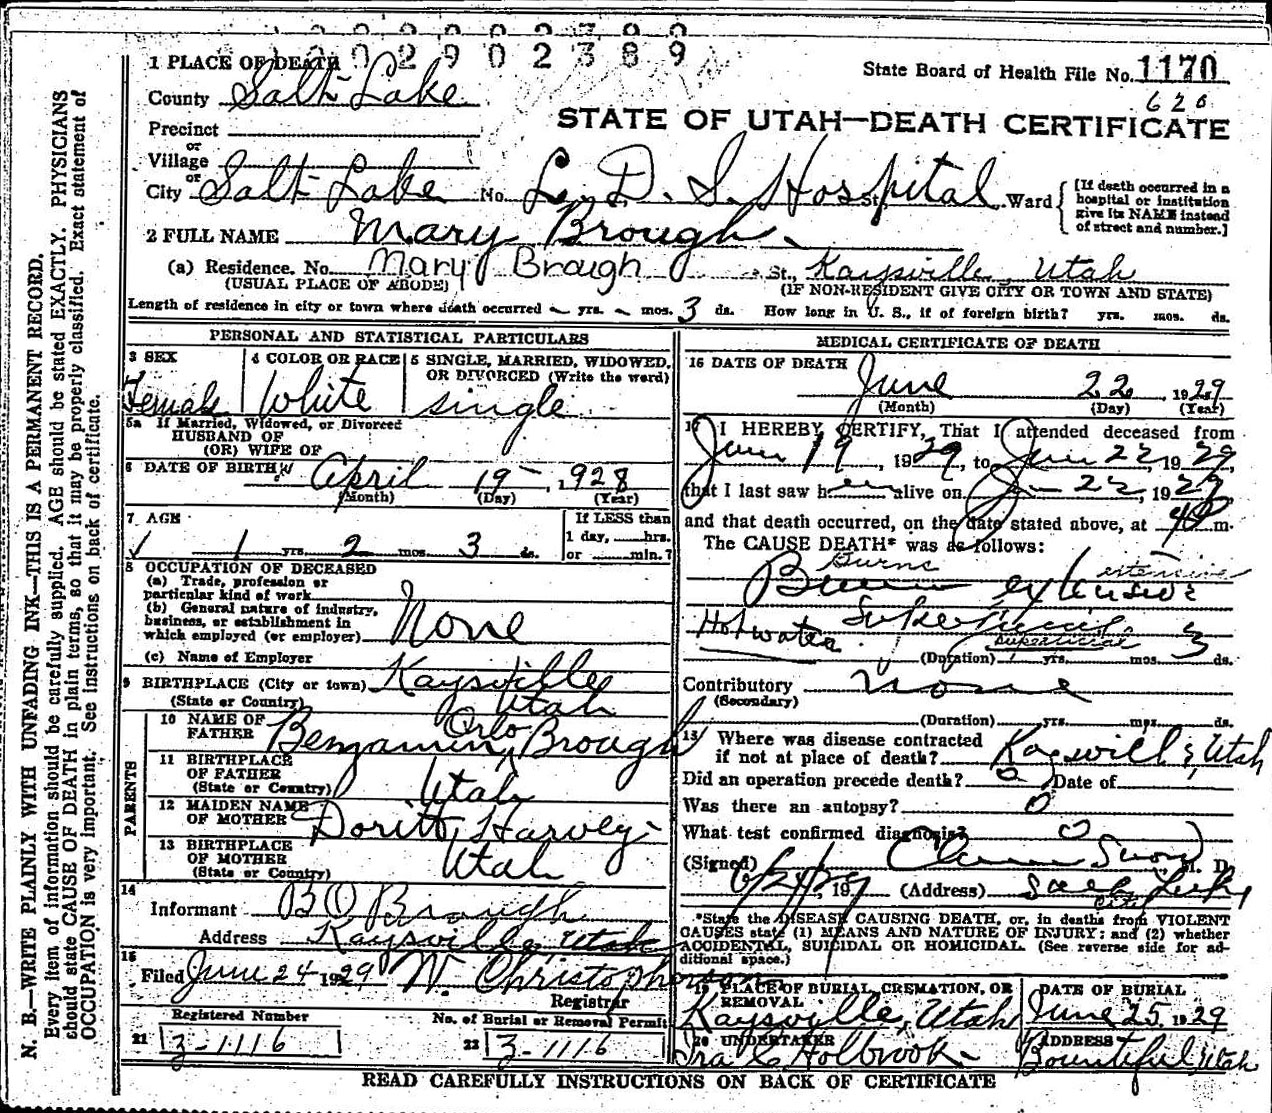 0 0 2 9 0 2 3 8 9
1 PLACE OF DEATH
State Board of Health File No. 1170
620
County Salt Lake
STATE OF UTAH—DEATH CERTIFICATE
Precinct
or
Village
or
City Salt Lake No. L. D. S. Hospital St. Ward
[If death occurred in a
hospital or institution
give its NAME instead
of street and number.]
2 FULL NAME Mary Brough
(a) Residence. No. Mary Brough St., Kaysville, Utah
(USUAL PLACE OF ABODE) (IF NON-RESIDENT GIVE CITY OR TOWN AND STATE)
Length of residence in city or town where death occurred – yrs. – mos. 3 ds. How long in U. S., if of foreign birth? yrs. mos. ds.
PERSONAL AND STATISTICAL PARTICULARS
3 SEX 4 COLOR OR RACE 5 SINGLE, MARRIED, WIDOWED,
OR DIVORCED (Write the word)
Female White single
5a If Married, Widowed, or Divorced
HUSBAND OF
(OR) WIFE OF
6 DATE OF BIRTH April 19 – , 1928
(Month) (Day) (Year)
7 AGE
1 yrs. 2 mos. 3 ds.
If LESS than
1 day, hrs.
or min.?
8 OCCUPATION OF DECEASED
(a) Trade, profession or
particular kind of work
(b) General nature of industry,
business, or establishment in
which employed (or employer) None
(c) Name of Employer
9 BIRTHPLACE (City or town) Kaysville
(State or Country) Utah
PARENTS
10 NAME OF
FATHER Benjamin Orlo Brough
11 BIRTHPLACE
OF FATHER
(State or Country) Utah
12 MAIDEN NAME
OF MOTHER Doritt Harvey
13 BIRTHPLACE
OF MOTHER
(State or Country) Utah
14
Informant B O Brough
Address Kaysville, Utah
15
Filed June 24 1929 W. Christopherson
Registrar
Registered Number No. of Burial or Removal Permit
21 3-1116 22 3-1116
MEDICAL CERTIFICATE OF DEATH
16 DATE OF DEATH
June 22 , 1929
(Month) (Day) (Year)
17 I HEREBY CERTIFY, That I attended deceased from
June 19 , 1929, to June 22, 1929,
that I last saw her alive on J – 22, 1929
and that death occurred, on the date stated above, at m.
The CAUSE DEATH* was as follows:
Burns extensive
Burns extensive
Hot water superficial
superficial
(Duration) yrs. mos. 3 ds.
Contributory none
(Secondary)
(Duration) yrs. mos. ds.
18 Where was disease contracted
if not at place of death? Kaysville, Utah
Did an operation precede death? 0 Date of
Was there an autopsy? 0
What test confirmed diagnosis? 0
(Signed) Snow M. D.
6/24/29, 19 (Address) Salt Lake
City
*State the DISEASE CAUSING DEATH, or, in deaths from VIOLENT
CAUSES state (1) MEANS AND NATURE OF INJURY; and (2) whether
ACCIDENTAL, SUICIDAL OR HOMICIDAL. (See reverse side for ad-
ditional space.)
19 PLACE OF BURIAL, CREMATION, OR
REMOVAL
Kaysville, Utah
DATE OF BURIAL
June 25, 1929
20 UNDERTAKER
Ira C Holbrook
ADDRESS
Bountiful, Utah
READ CAREFULLY INSTRUCTIONS ON BACK OF CERTIFICATE
N. B.—WRITE PLAINLY WITH UNFADING INK—THIS IS A PERMANENT RECORD.
Every item of information should be carefully supplied. AGE should be stated EXACTLY. PHYSICIANS
should state CAUSE OF DEATH in plain terms, so that it may be properly classified. Exact statement of
OCCUPATION is very important. See instructions on back of certificate.